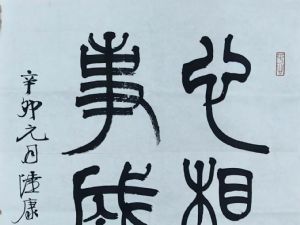 心相
事成
辛卯元月陸康